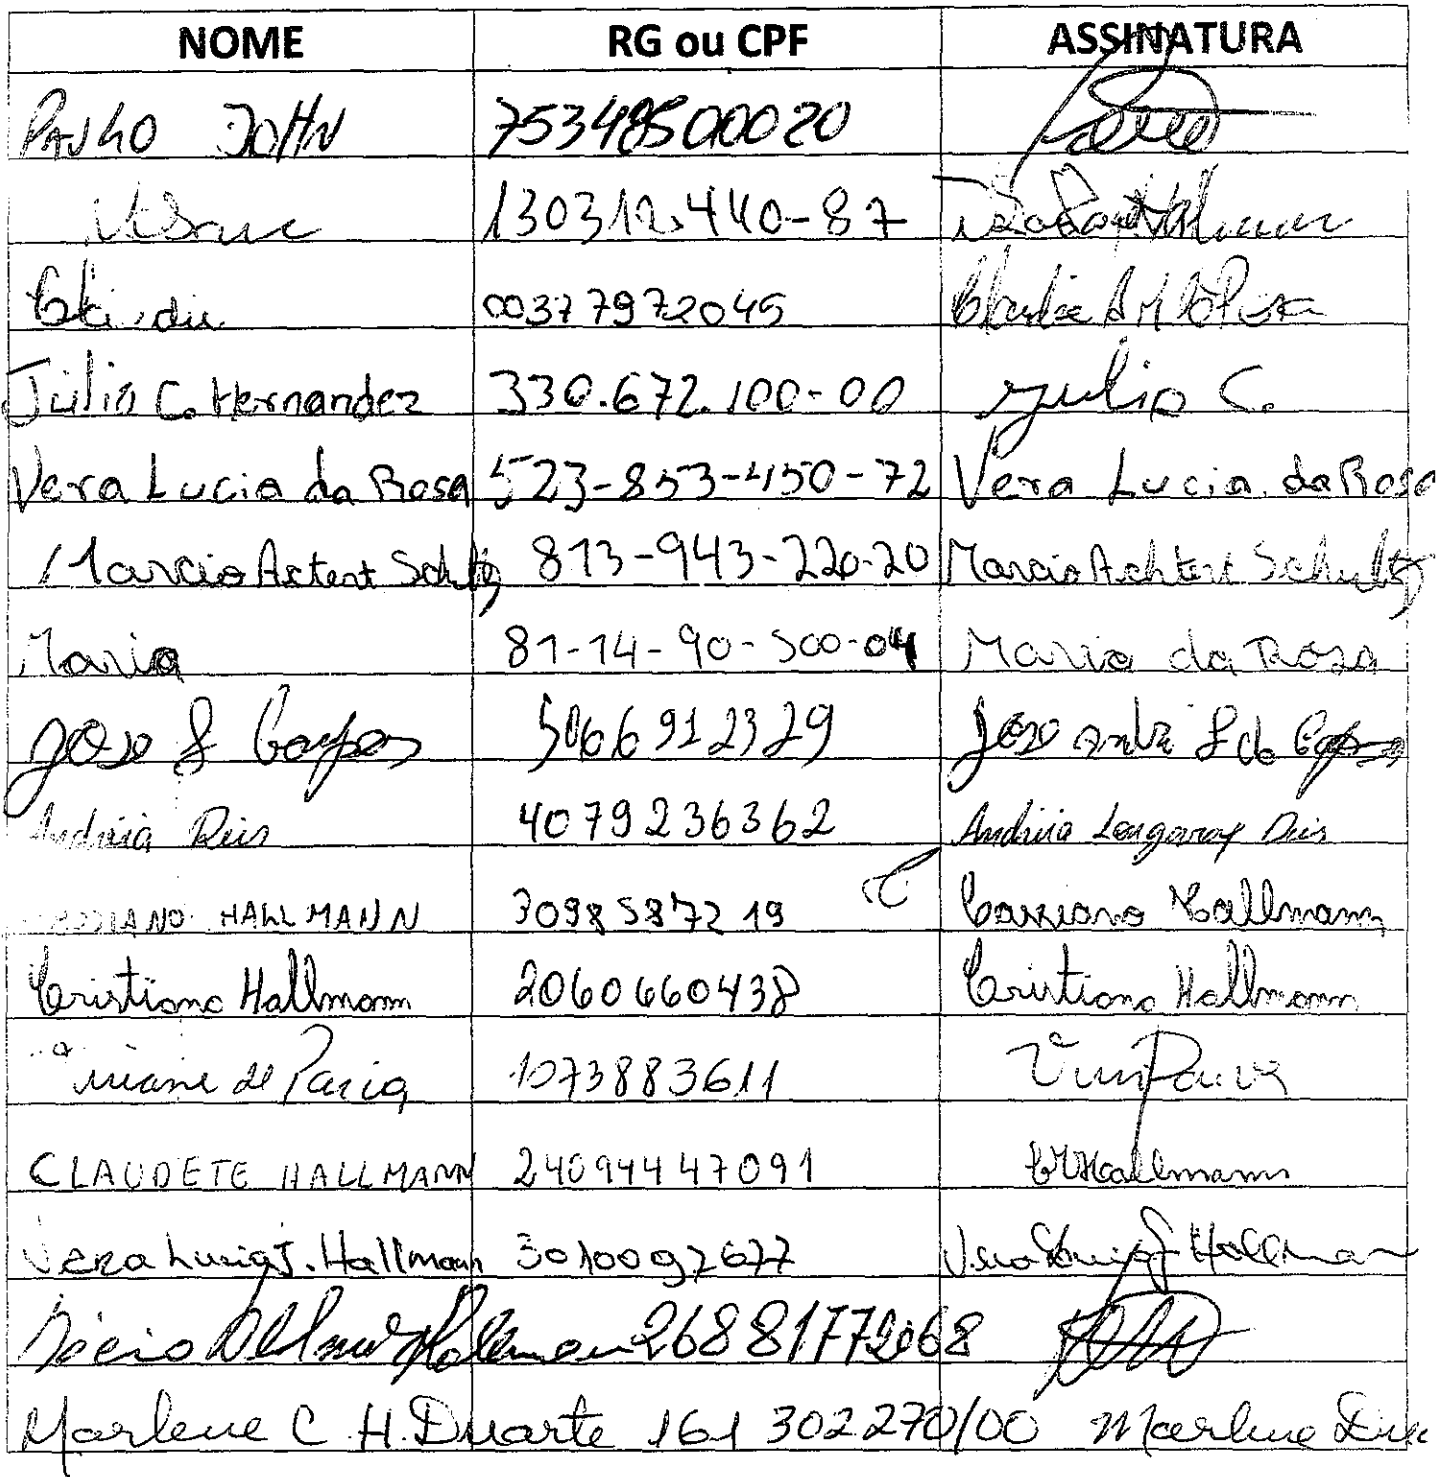 NOME RG ou CPF ASSINATURA
PAULO JOHN 75348500020
130312.440-87
00377972045
Julio C. Hernandez 330.672.100-00 Julio C.
Vera Lucia da Rosa 523-853-450-72 Vera Lucia da Rosa
Marcio Actert Schultz 813-943-220-20 Marcio Achtert Schultz
Maria 81-14-90-500-04 Maria da Rosa
5066912329
Andréia Reis 4079236362 Andréia Reis
HALLMANN 3098587219 Cassiano Hallmann
Cristiano Hallmann 2060660438 Cristiano Hallmann
1073883611
CLAUDETE HALLMANN 24094447091 Hallmann
Vera Lucia J. Hallmann 3010092677 Vera Lucia J Hallmann
26881772068
Marlene C H. Duarte 161 302 270/00 Marlene